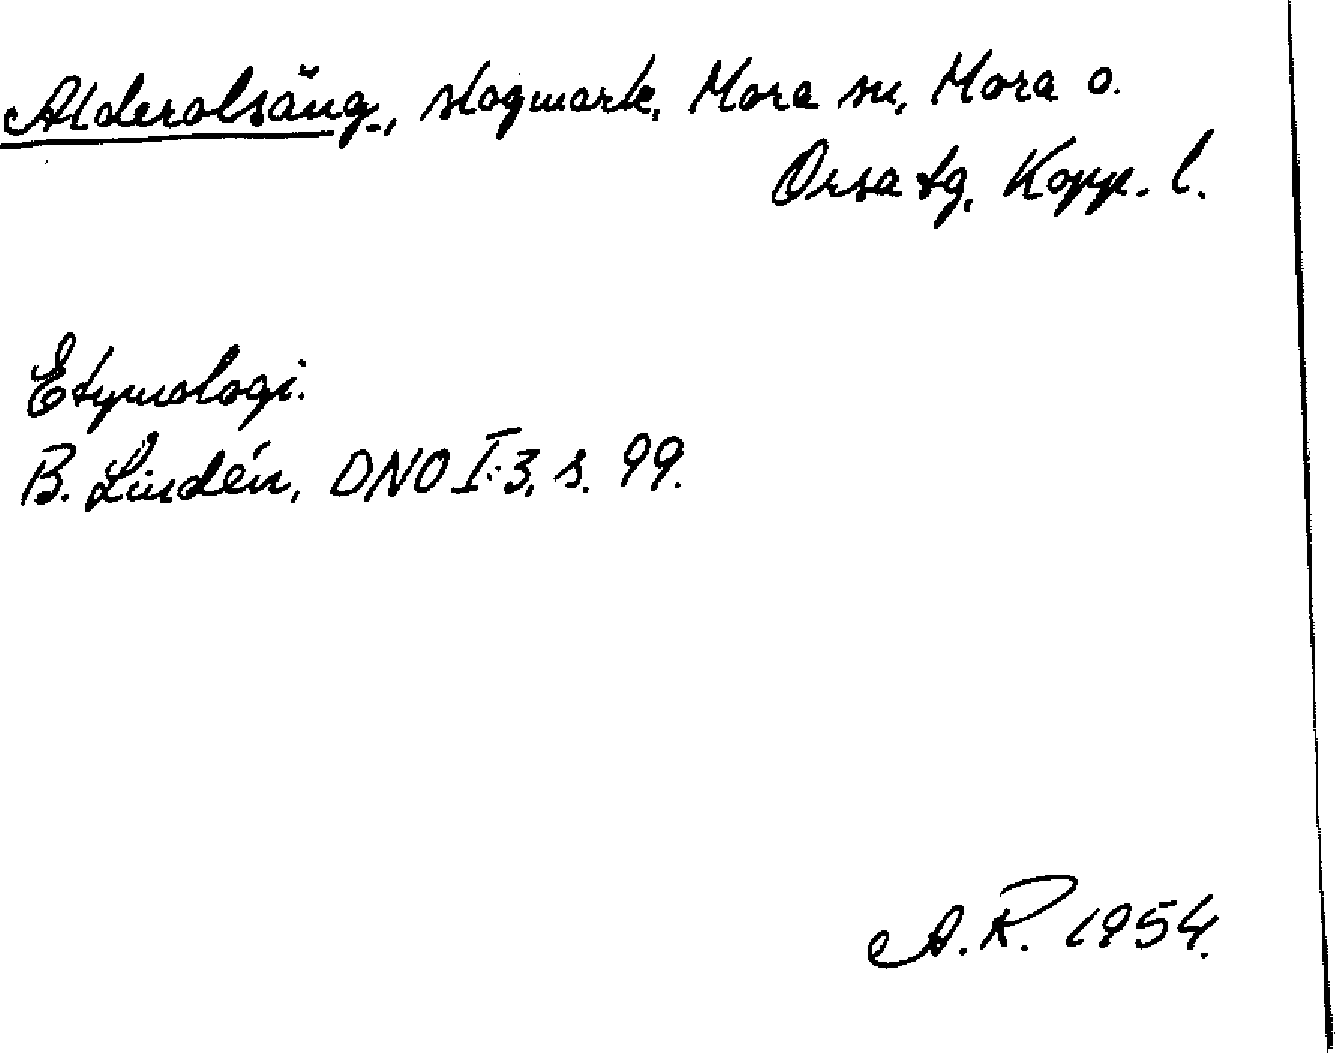 Alderolsäng., skogmark, Mora sn, Mora o.
Orsa tg, Kopp. l.
Etymologi.
B. Lindén, DNO I:3, s. 99.
A.R. 1954.